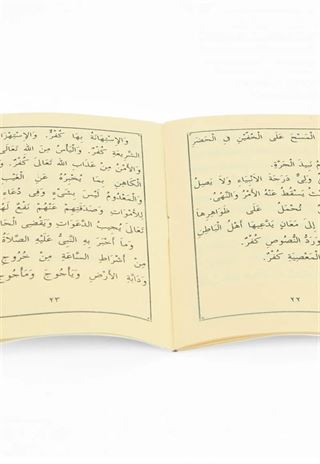 الْمَسْحَ عَلَى الْخُفَّيْنِ فِي الْحَضَرِ
نَبِيذَ الْجَرَّةِ.
وَلِيٌّ دَرَجَةَ الْأَنْبِيَاءِ وَلَا يَصِلُ
يَسْقُطُ عَنْهُ الْأَمْرُ وَالنَّهْيُ.
تُحْمَلُ عَلَى ظَوَاهِرِهَا
إِلَى مَعَانٍ يَدَّعِيهَا أَهْلُ الْبَاطِنِ
وَرَدُّ النُّصُوصِ كُفْرٌ.
الْمَعْصِيَةِ كُفْرٌ.
٢٢
وَالْاِسْتِهَانَةُ بِهَا كُفْرٌ. وَالْاِسْتِهْزَاءُ
الشَّرِيعَةِ كُفْرٌ. وَالْيَأْسُ مِنَ اللهِ تَعَالَى
وَالْأَمْنُ مِنْ عَذَابِ اللهِ تَعَالَى كُفْرٌ.
الْكَاهِنِ بِمَا يُخْبِرُهُ عَنِ الْغَيْبِ
وَالْمَعْدُومُ لَيْسَ بِشَيْءٍ وَفِي دُعَاءِ
لِلْأَمْوَاتِ وَصَدَقَتِهِمْ عَنْهُمْ نَفْعٌ لَهُمْ
تَعَالَى يُجِيبُ الدَّعَوَاتِ وَيَقْضِي
وَمَا أَخْبَرَ بِهِ النَّبِيُّ عَلَيْهِ الصَّلَاةُ
مِنْ أَشْرَاطِ السَّاعَةِ مِنْ خُرُوجِ
وَدَابَّةِ الْأَرْضِ وَيَأْجُوجَ وَمَأْجُوجَ
٢٣